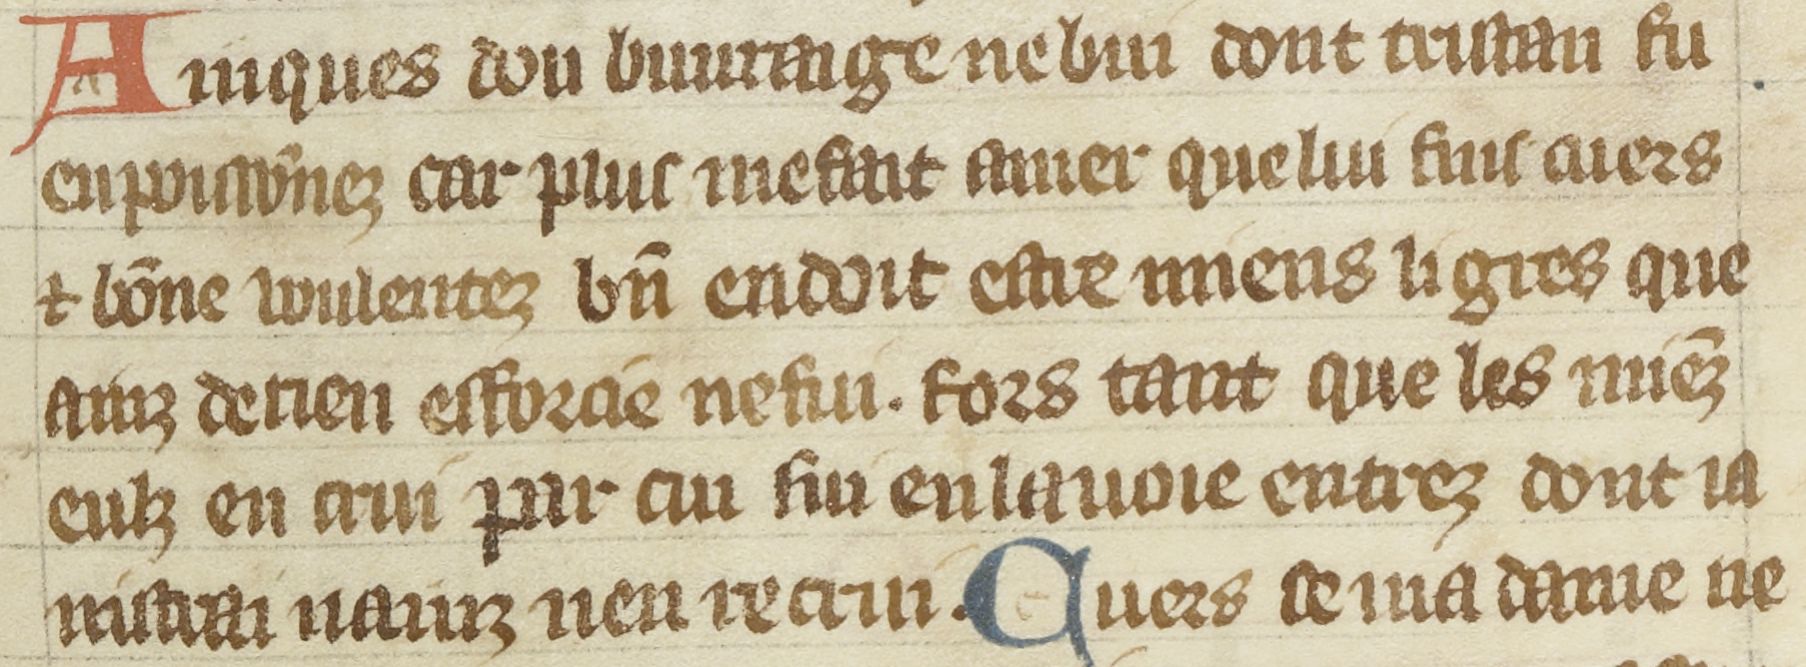 Ainques dou buuraige ne bui dont tristan fu
enpoiisōnez car plus me fait amer que lui fins cuers
⁊ bōne voulentez bn̄ en doit estre miens li grez que
ainz de rien esforcie ne fui. fors tant que les miēz
eulz en crui par cui fui en la voie entrez dont ia
nistrai nainz nen recrui. Cuers se ma dame ne